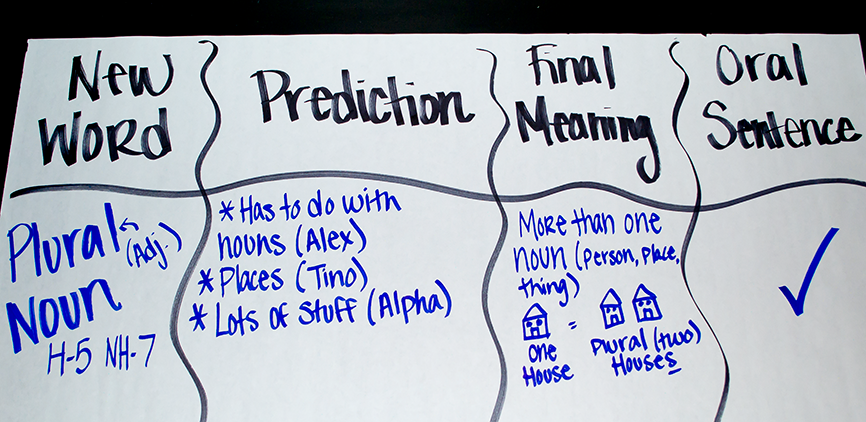 New
Word
Prediction
Final
Meaning
Oral
Sentence
Plural (Adj.)
Noun
H-5 NH-7
* Has to do with
nouns (Alex)
* Places (Tino)
* Lots of Stuff (Alpha)
More than one
noun (person, place,
thing)
=
one
House
Plural (two)
Houses
✓